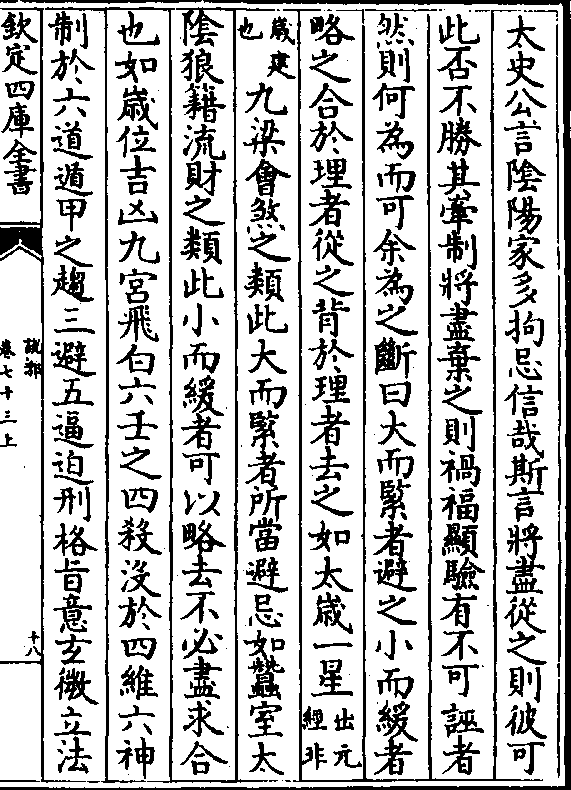 太史公言陰陽家多拘忌信哉斯言將盡從之則彼可
此否不勝其牽制將盡棄之則禍福顯驗有不可誣者
然則何為而可余為之斷曰大而緊者避之小而緩者
略之合於理者從之背於理者去之如太歲一星出元經非
歲建也九梁會煞之類此大而緊者所當避忌如蠶室太
陰狼籍流財之類此小而緩者可以略去不必盡求合
也如歲位吉凶九宮飛白六壬之四殺沒於四維六神
制於六道遁甲之趨三避五逼迫刑格旨意玄微立法
欽定四庫全書
說郛
卷七十三上
十八